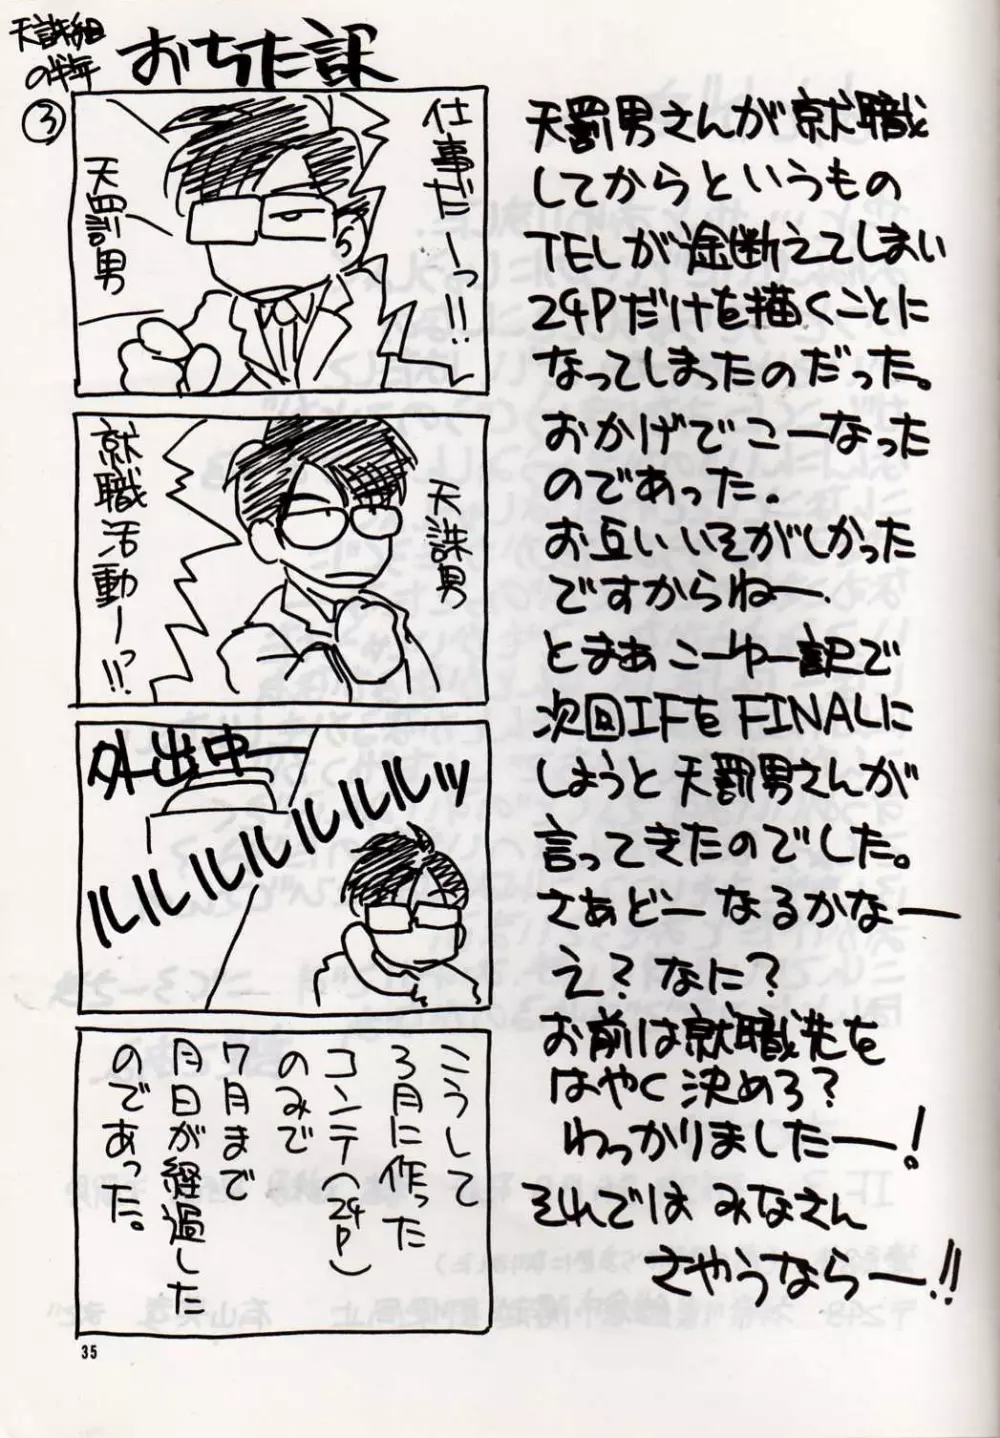 天誅組
の半年
おちた訳
③
仕事だーっ!!
天罰男
天誅男
就職活動ーっ!!
外出中ー
ルルルルルルルルッ
こうして
3月に作った
コンテ(24P)
のみで
7月まで
月日が経過した
のであった。
天罰男さんが就職
してからというもの
TELが途断えてしまい
24Pだけを描くことに
なってしまったのだった。
おかげでこーなった
のであった.
お互いいそがしかった
ですからねー.
とまあこーゆー訳で
次回IFをFINALに
しようと天罰男さんが
言ってきたのでした。
さあどーなるかなー
え?なに?
お前は就職先を
はやく決めろ?
わっかりましたー!
それではみなさん
さやうならー!!
35